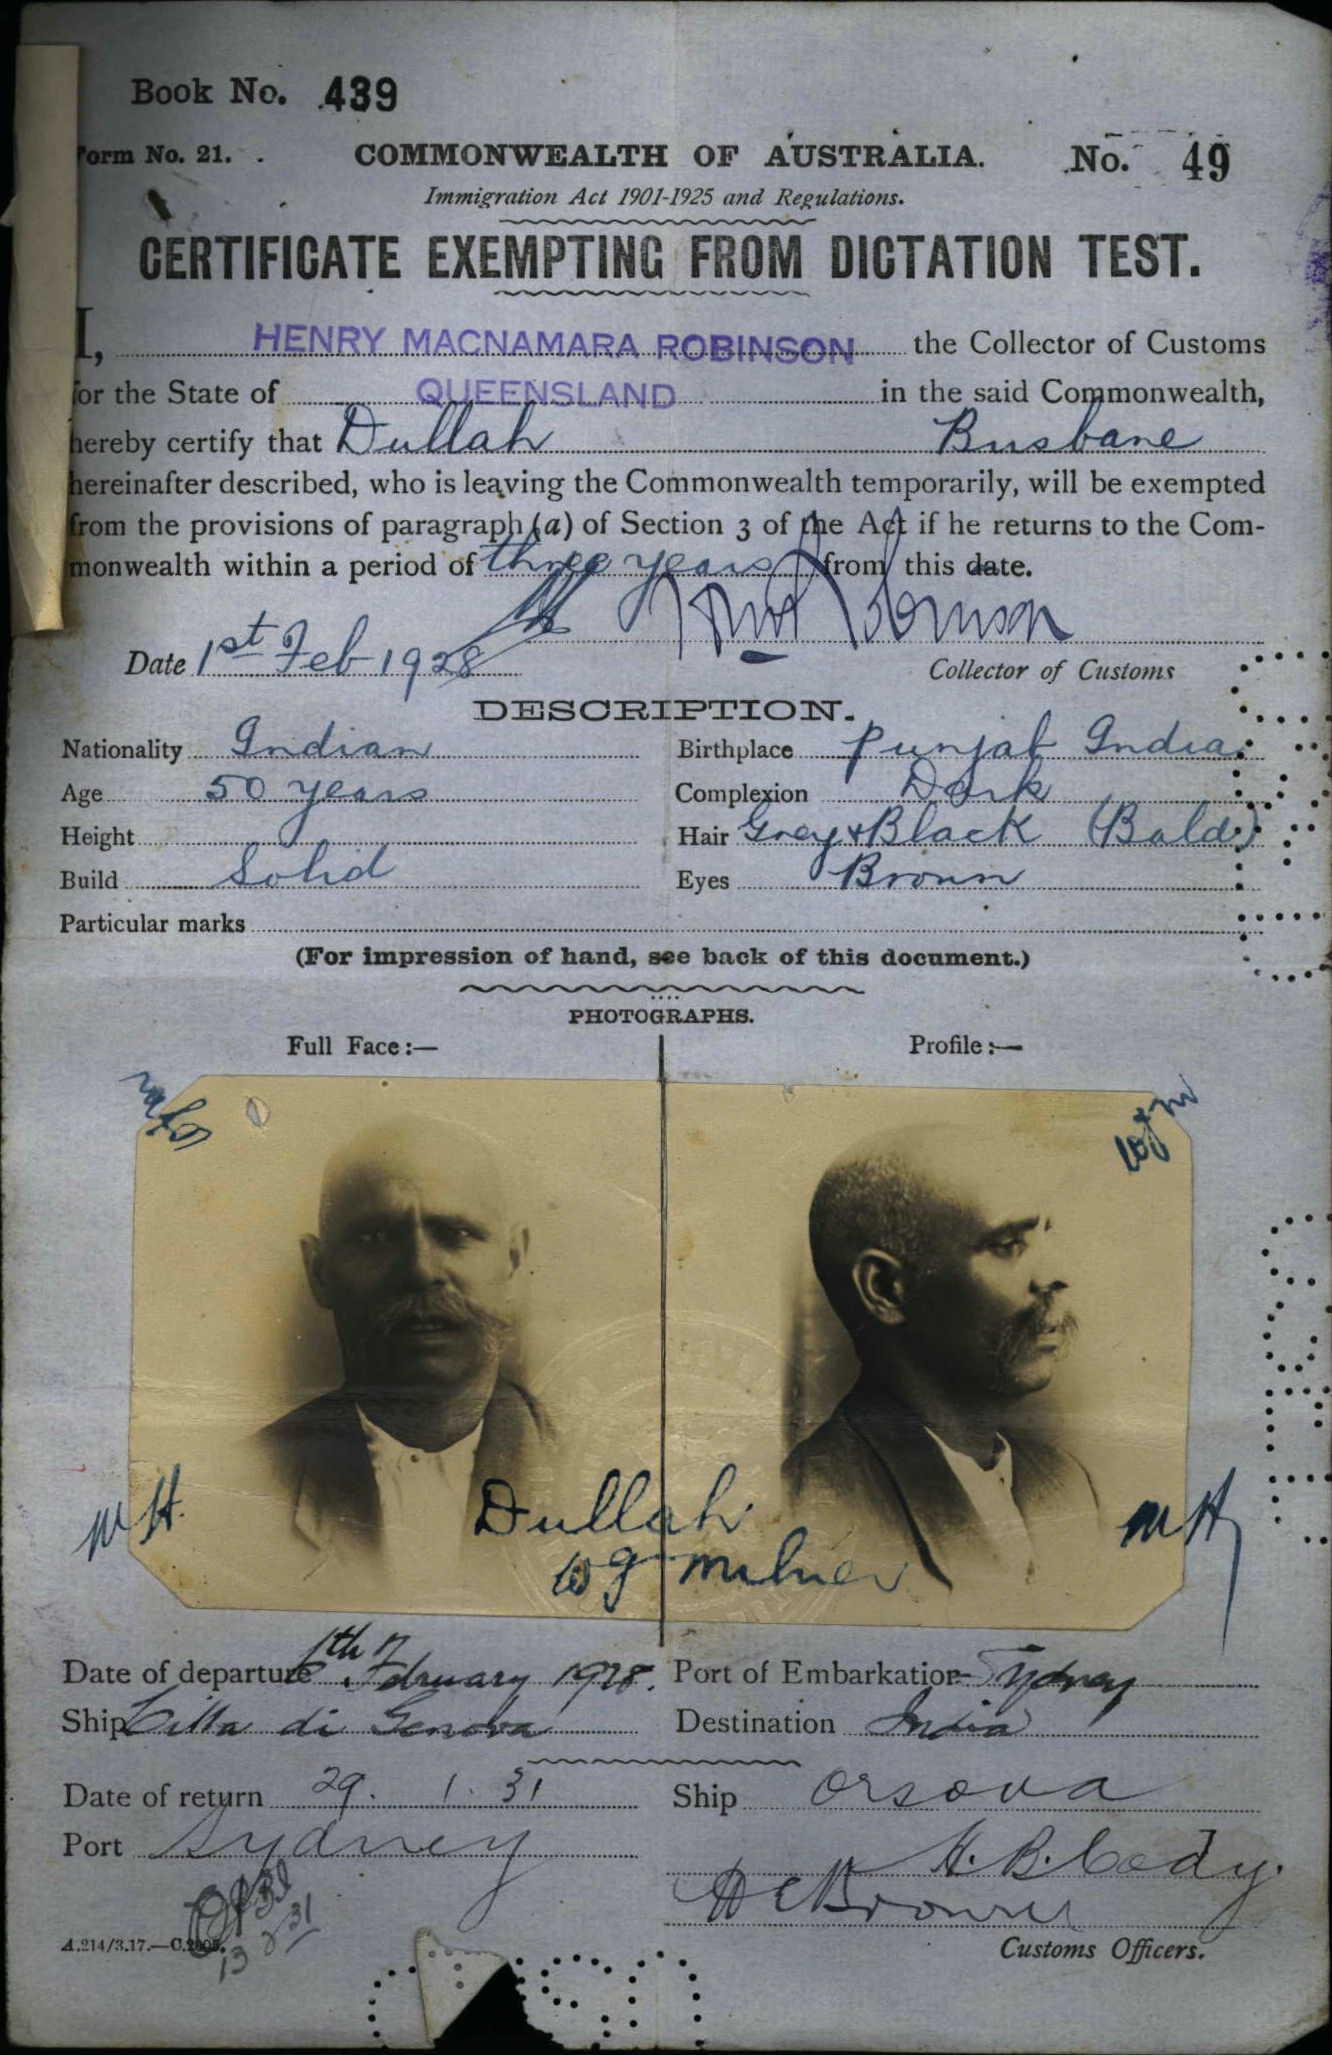 Book No. 439
Form No. 21. COMMONWEALTH OF AUSTRALIA. No. 49
Immigration Act 1901-1925 and Regulations.
CERTIFICATE EXEMPTING FROM DICTATION TEST.
I, HENRY MACNAMARA ROBINSON the Collector of Customs
for the State of QUEENSLAND in the said Commonwealth,
hereby certify that Dullah Brisbane
hereinafter described, who is leaving the Commonwealth temporarily, will be exempted
from the provisions of paragraph (a) of Section 3 of the Act if he returns to the Com-
monwealth within a period of three years from this date.
Robinson
Date 1st Feb 1928 Collector of Customs
DESCRIPTION.
Nationality Indian Birthplace Punjab India
Age 50 years Complexion Dark
Height Hair Grey & Black (Bald)
Build Solid Eyes Brown
Particular marks
(For impression of hand, see back of this document.)
PHOTOGRAPHS.
Full Face:— Profile:—
wgm
WH. Dullah WH
W G Milner
Date of departure 6th February 1928. Port of Embarkation Sydney
Ship Citta di Genova Destination India
Date of return 29. 1. 31 Ship Orsova
Port Sydney H. B. Cody.
H C Brown
A.214/3.17.—C.2605. Customs Officers.